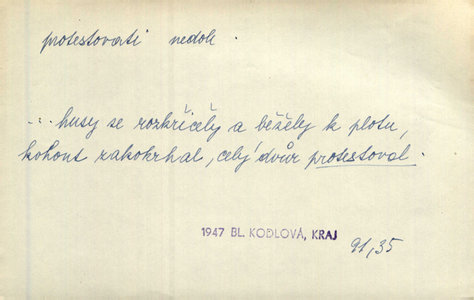 protestovati nedok.
... husy se rozkřičely a běžely k plotu,
kohout zakokrhal, celý dvůr protestoval.
1947 BL. KODLOVÁ, KRAJ
91,35